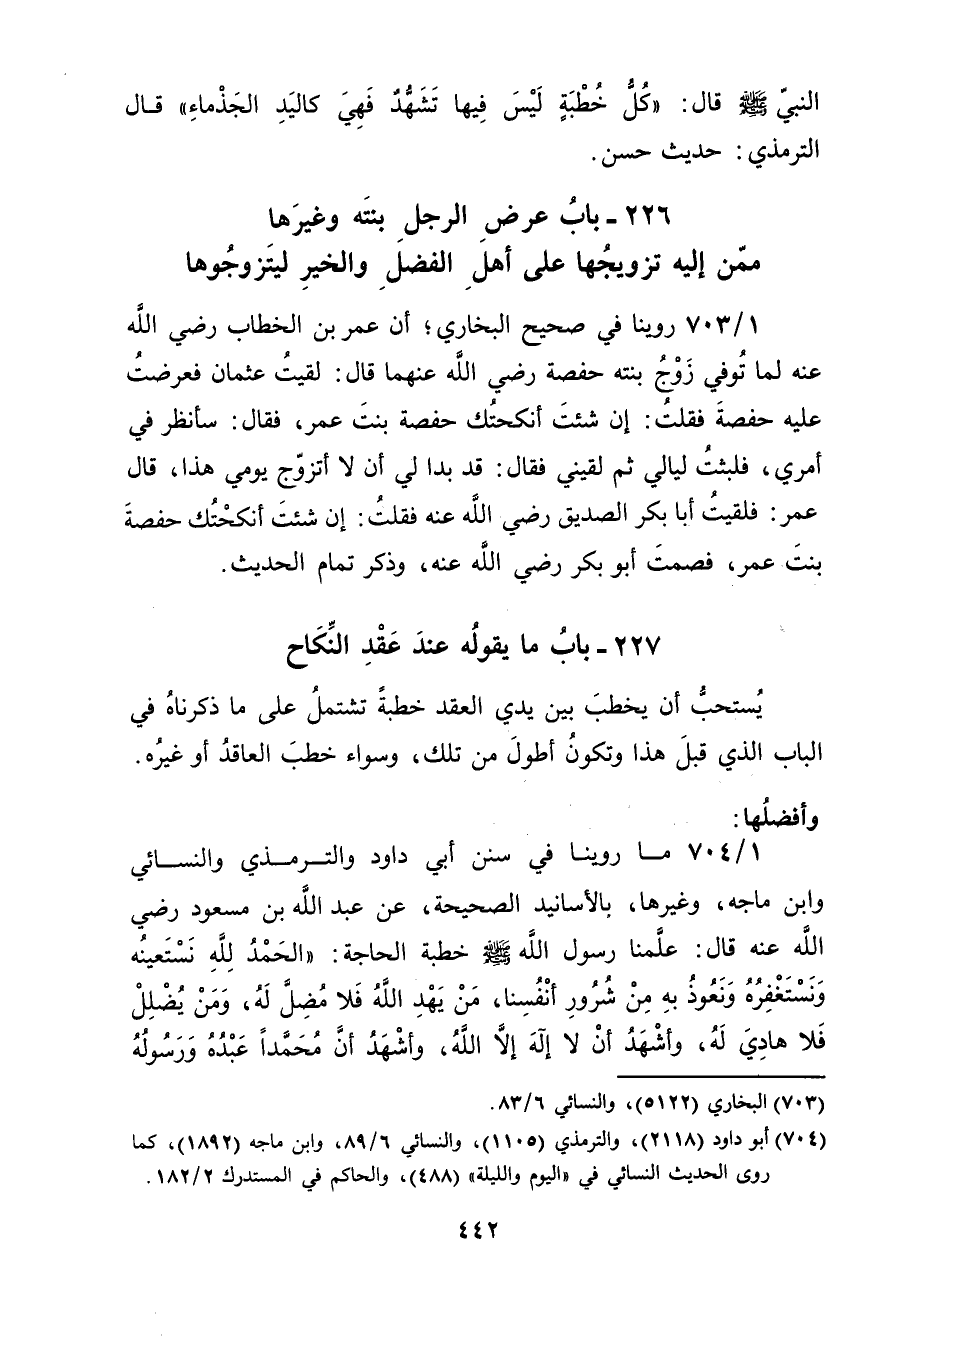 النبيّ ﷺ قال: «كُلُّ خُطْبَةٍ لَيْسَ فِيها تَشَهُّدٌ فَهِيَ كاليَدِ الجَذْماءِ» قال
الترمذي: حديث حسن.
٢٢٦ ـ بابُ عرضِ الرجلِ بنتَه وغيرَها
ممّن إليه تزويجُها على أهلِ الفضلِ والخيرِ ليتَزوجُوها
٧٠٣/١ روينا في صحيح البخاري؛ أن عمر بن الخطاب رضي اللَّه
عنه لما تُوفي زَوْجُ بنته حفصة رضي اللَّه عنهما قال: لقيتُ عثمان فعرضتُ
عليه حفصةَ فقلتُ: إن شئتَ أنكحتُك حفصة بنتَ عمر، فقال: سأنظر في
أمري، فلبثتُ ليالي ثم لقيني فقال: قد بدا لي أن لا أتزوّج يومي هذا، قال
عمر: فلقيتُ أبا بكر الصديق رضي اللَّه عنه فقلتُ: إن شئتَ أنكحْتُك حفصةَ
بنتَ عمر، فصمتَ أبو بكر رضي اللَّه عنه، وذكر تمام الحديث.
٢٢٧ ـ بابُ ما يقولُه عندَ عَقْدِ النِّكَاح
يُستحبُّ أن يخطبَ بين يدي العقد خطبةً تشتملُ على ما ذكرناهُ في
الباب الذي قبلَ هذا وتكونُ أطولَ من تلك، وسواء خطبَ العاقدُ أو غيرُه.
وأفضلُها:
٧٠٤/١ مـا روينـا في سنن أبي داود والتـرمـذي والنسـائي
وابن ماجه، وغيرها، بالأسانيد الصحيحة، عن عبد اللَّه بن مسعود رضي
اللَّه عنه قال: علَّمنا رسول اللَّه ﷺ خطبة الحاجة: «الحَمْدُ لِلَّهِ نَسْتَعينُه
وَنَسْتَغْفِرُهُ وَنَعُوذُ بِهِ مِنْ شُرُورِ أنْفُسِنا، مَنْ يَهْدِ اللَّهُ فَلا مُضِلَّ لَهُ، وَمَنْ يُضْلِلْ
فَلا هادِيَ لَهُ، وأشْهَدُ أنْ لا إلَهَ إلاَّ اللَّهُ، وأشْهَدُ أنَّ مُحَمَّداً عَبْدُهُ وَرَسُولُهُ
(٧٠٣) البخاري (٥١٢٢)، والنسائي ٨٣/٦.
(٧٠٤) أبو داود (٢١١٨)، والترمذي (١١٠٥)، والنسائي ٨٩/٦، وابن ماجه (١٨٩٢)، كما
روى الحديث النسائي في «اليوم والليلة» (٤٨٨)، والحاكم في المستدرك ١٨٢/٢.
٤٤٢